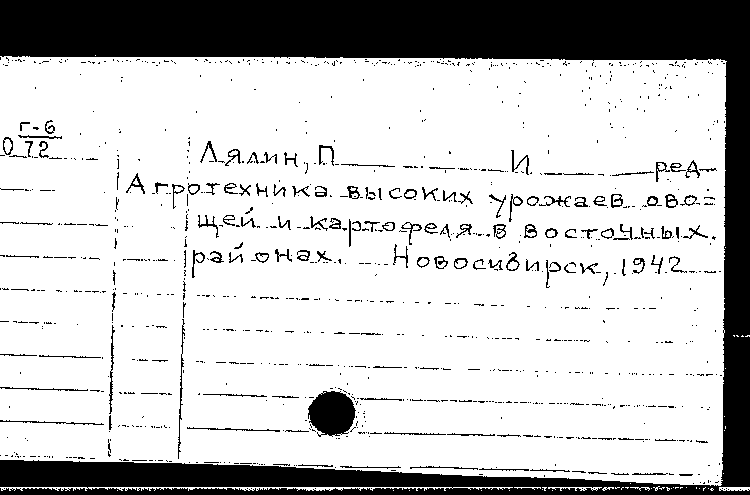 г-6
0 72
Лялин, П И ред
Агротехника высоких урожаев ово=
щей и картофеля в восточных
районах. Новосибирск, 1942